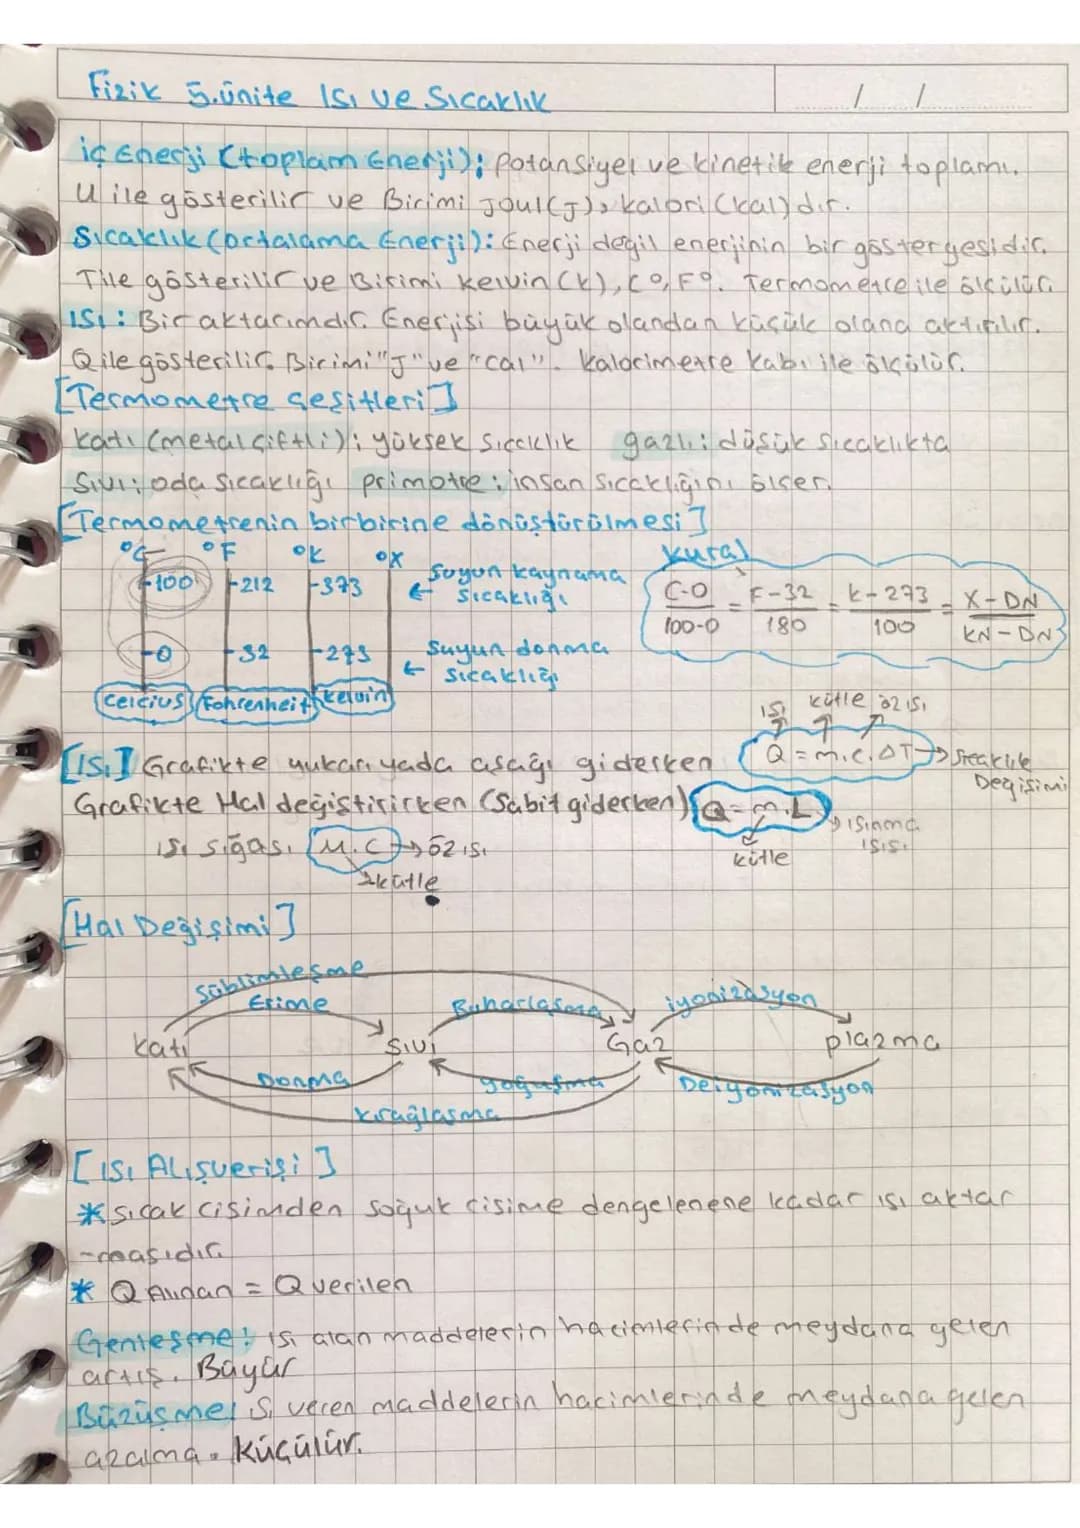 Fizik 5.ünite Isı ve Sıcaklık
/ /
iç Enerji (toplam Enerji); potansiyel ve kinetik enerji toplamı.
U ile gösterilir ve Birimi Joul(J), kalori (kal) dır.
Sıcaklık (ortalama Enerji): Enerji değil enerjinin bir göstergesidir.
T ile gösterilir ve Birimi kelvin (k), C°, F°. Termometre ile ölçülür.
ISI : Bir aktarımdır. Enerjisi büyük olandan küçük olana aktırılır.
Q ile gösterilir. Birimi "J" ve "cal". kalorimetre kabı ile ölçülür.
[Termometre Çeşitleri]
katı (metal çiftli); yüksek sıcaklık gazlı: düşük sıcaklıkta
Sıvı: oda sıcaklığı primotre: insan sıcaklığını ölçer.
[Termometrenin birbirine dönüştürülmesi]
°C °F °K °X kural
100 212 373 ← Suyun kaynama sıcaklığı
0 32 273 ← Suyun donma sıcaklığı
C-0/100-0 = F-32/180 = k-273/100 = X-DN/KN-DN
Celcius Fahrenheit kelvin
ısı kütle özısı
[Isı] Grafikte yukarı yada aşağı giderken Q = m.c.ΔT → Sıcaklık Değişimi
Grafikte Hal değiştirirken (Sabit giderken) Q = m.L
kütle ısınma ısısı
ısı sığası M.C → özısı
kütle
[Hal Değişimi]
Süblimleşme
Erime Buharlaşma iyonizasyon
Katı Sıvı Gaz plazma
Donma yoğuşma Deiyonizasyon
kırağlaşma
[ISI Alışverişi]
* sıcak cisimden soğuk cisime dengelenene kadar ısı aktar
-masıdır.
* Q Alınan = Q verilen
Genleşme: ısı alan maddelerin hacimlerinde meydana gelen
artış. Büyür
Büzüşme: ısı veren maddelerin hacimlerinde meydana gelen
azalma. Küçülür.